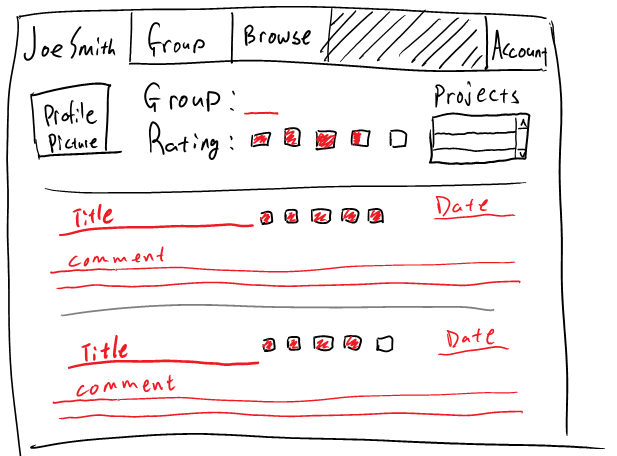 Joe Smith Group Browse Account
Profile Picture
Group:
Rating:
Projects
Title Date
comment
Title Date
comment